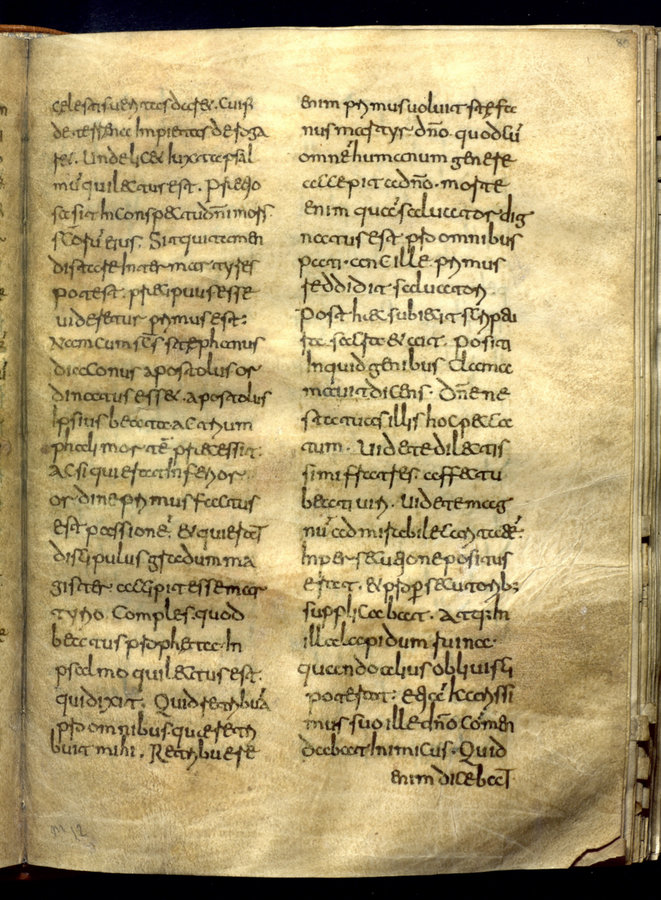 de terra inpietas deroga
r&. Unde lic& iuxta psal
mū qui lectus est. Pretio
sa sit in conspectu dn̄i mors
sc̄orū eius. Si quit tamen
distare inter martyres
potest. precipuus esse
uideretur primus est:
Nam cum sc̄s stephanus
diaconus apostolus or
dinatus ess&. apostolus
ipsius beata ac trium
phali morte precessit.
Ac si qui erat inferior
ordine primus factus
est passionē. & qui erat
discipulus gradum ma
gister cepit esse mar
tyrio. Comples quod
beatus propheta in
psalmo qui lectus est.
quid ixit. Quid retribuā
pro omnibus que retri
buit mihi. Retribuere
enim primus uoluit stefa
nus martyr dn̄o. quod cū
omnē humanum genere
accepit a dn̄o. morte
enim quā saluator dig
natus est pro omnibus
pati. anc ille primus
reddidit saluatori
Post hec subiecit scrip
tura sc̄a & ait. Positi
inquid genibus clama
uit dicens. Dn̄e ne
statuas illis hoc pecca
tum. Videte dilectis
simi fratres. affectu
beati uiri. Videte mag
nū admirabile caritatē.
In persecutione positus
erat. & pro persecutorib;
supplicabat. Atq; in
illa lapidum ruina
quando alius obliuisci
poterat: & karissi
mus suo ille dn̄o cōmen
dabat inimicus. Quid
enim dicebat